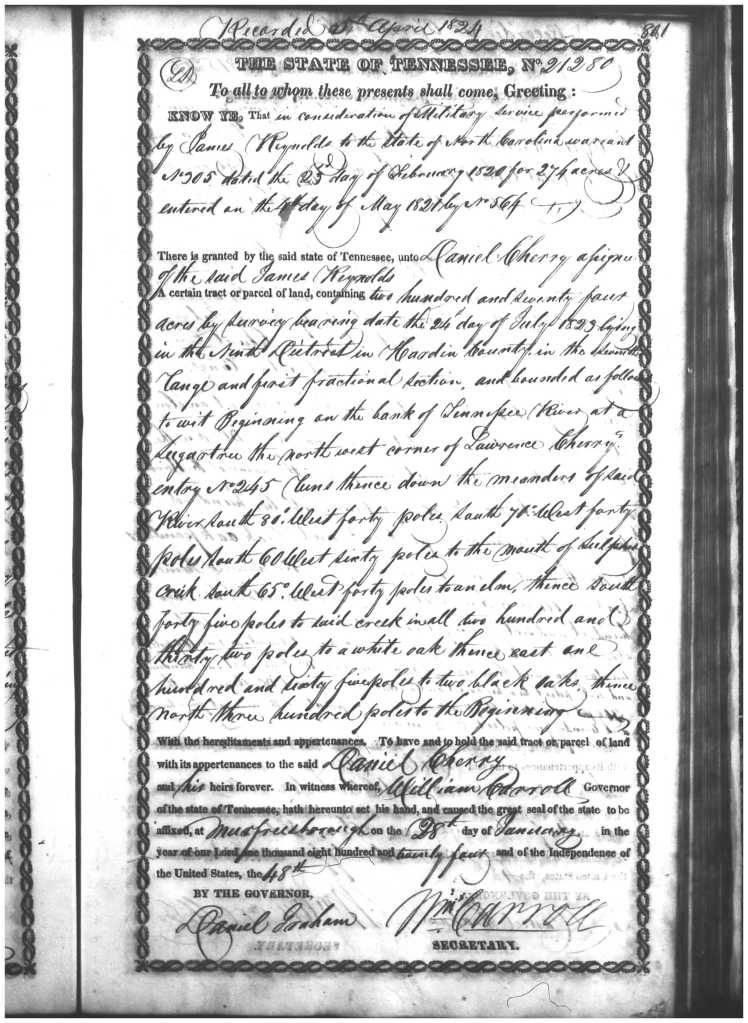 Recorded 5th April 1824
801
THE STATE OF TENNESSEE, No. 21280
To all to whom these presents shall come, Greeting:
KNOW YE, That in consideration of Military service performed
by James Reynolds to the State of North Carolina warrant
No 305 dated the 23d day of February 1820 for 274 acres &
entered on the 4th day of May 1821 by No 564
There is granted by the said state of Tennessee, unto Daniel Cherry assignee
of the said James Reynolds
A certain tract or parcel of land, containing two hundred and seventy four
acres by survey bearing date the 24th day of July 1823 lying
in the Ninth District in Hardin County in the seventh
range and first fractional section, and bounded as follows
to wit Beginning on the bank of Tennessee River at a
Sugartree the north west corner of Lawrence Cherrys
entry No 245 Runs thence down the meanders of said
River south 80° West forty poles south 70° West forty
poles South 60 West sixty poles to the mouth of sulpher
creek south 65° West forty poles to an elm, thence South
forty five poles to said creek in all two hundred and
thirty two poles to a white oak thence east one
hundred and sixty five poles to two black oaks, thence
north three hundred poles to the Beginning
With the hereditaments and appertenances. To have and to hold the said tract or parcel of land
with its appertenances to the said Daniel Cherry
and his heirs forever. In witness whereof, William Carroll Governor
of the state of Tennessee, hath hereunto set his hand, and caused the great seal of the state to be
affixed, at Murfreesborough on the 28th day of January in the
year of our Lord one thousand eight hundred and twenty four and of the Independence of
the United States, the 48th
BY THE GOVERNOR,
Daniel Graham Wm. Carroll
SECRETARY.